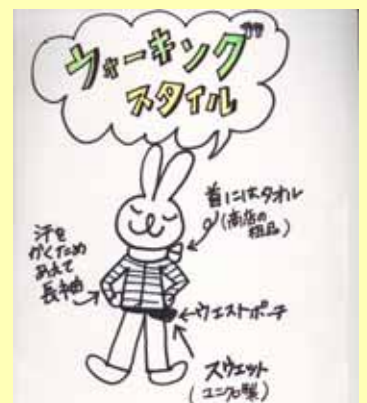 ウォーキング
スタイル
首にはタオル
(商店の
粗品)
汗を
かくため
あえて
長袖
←ウエストポーチ
スウェット
(ユニクロ製)